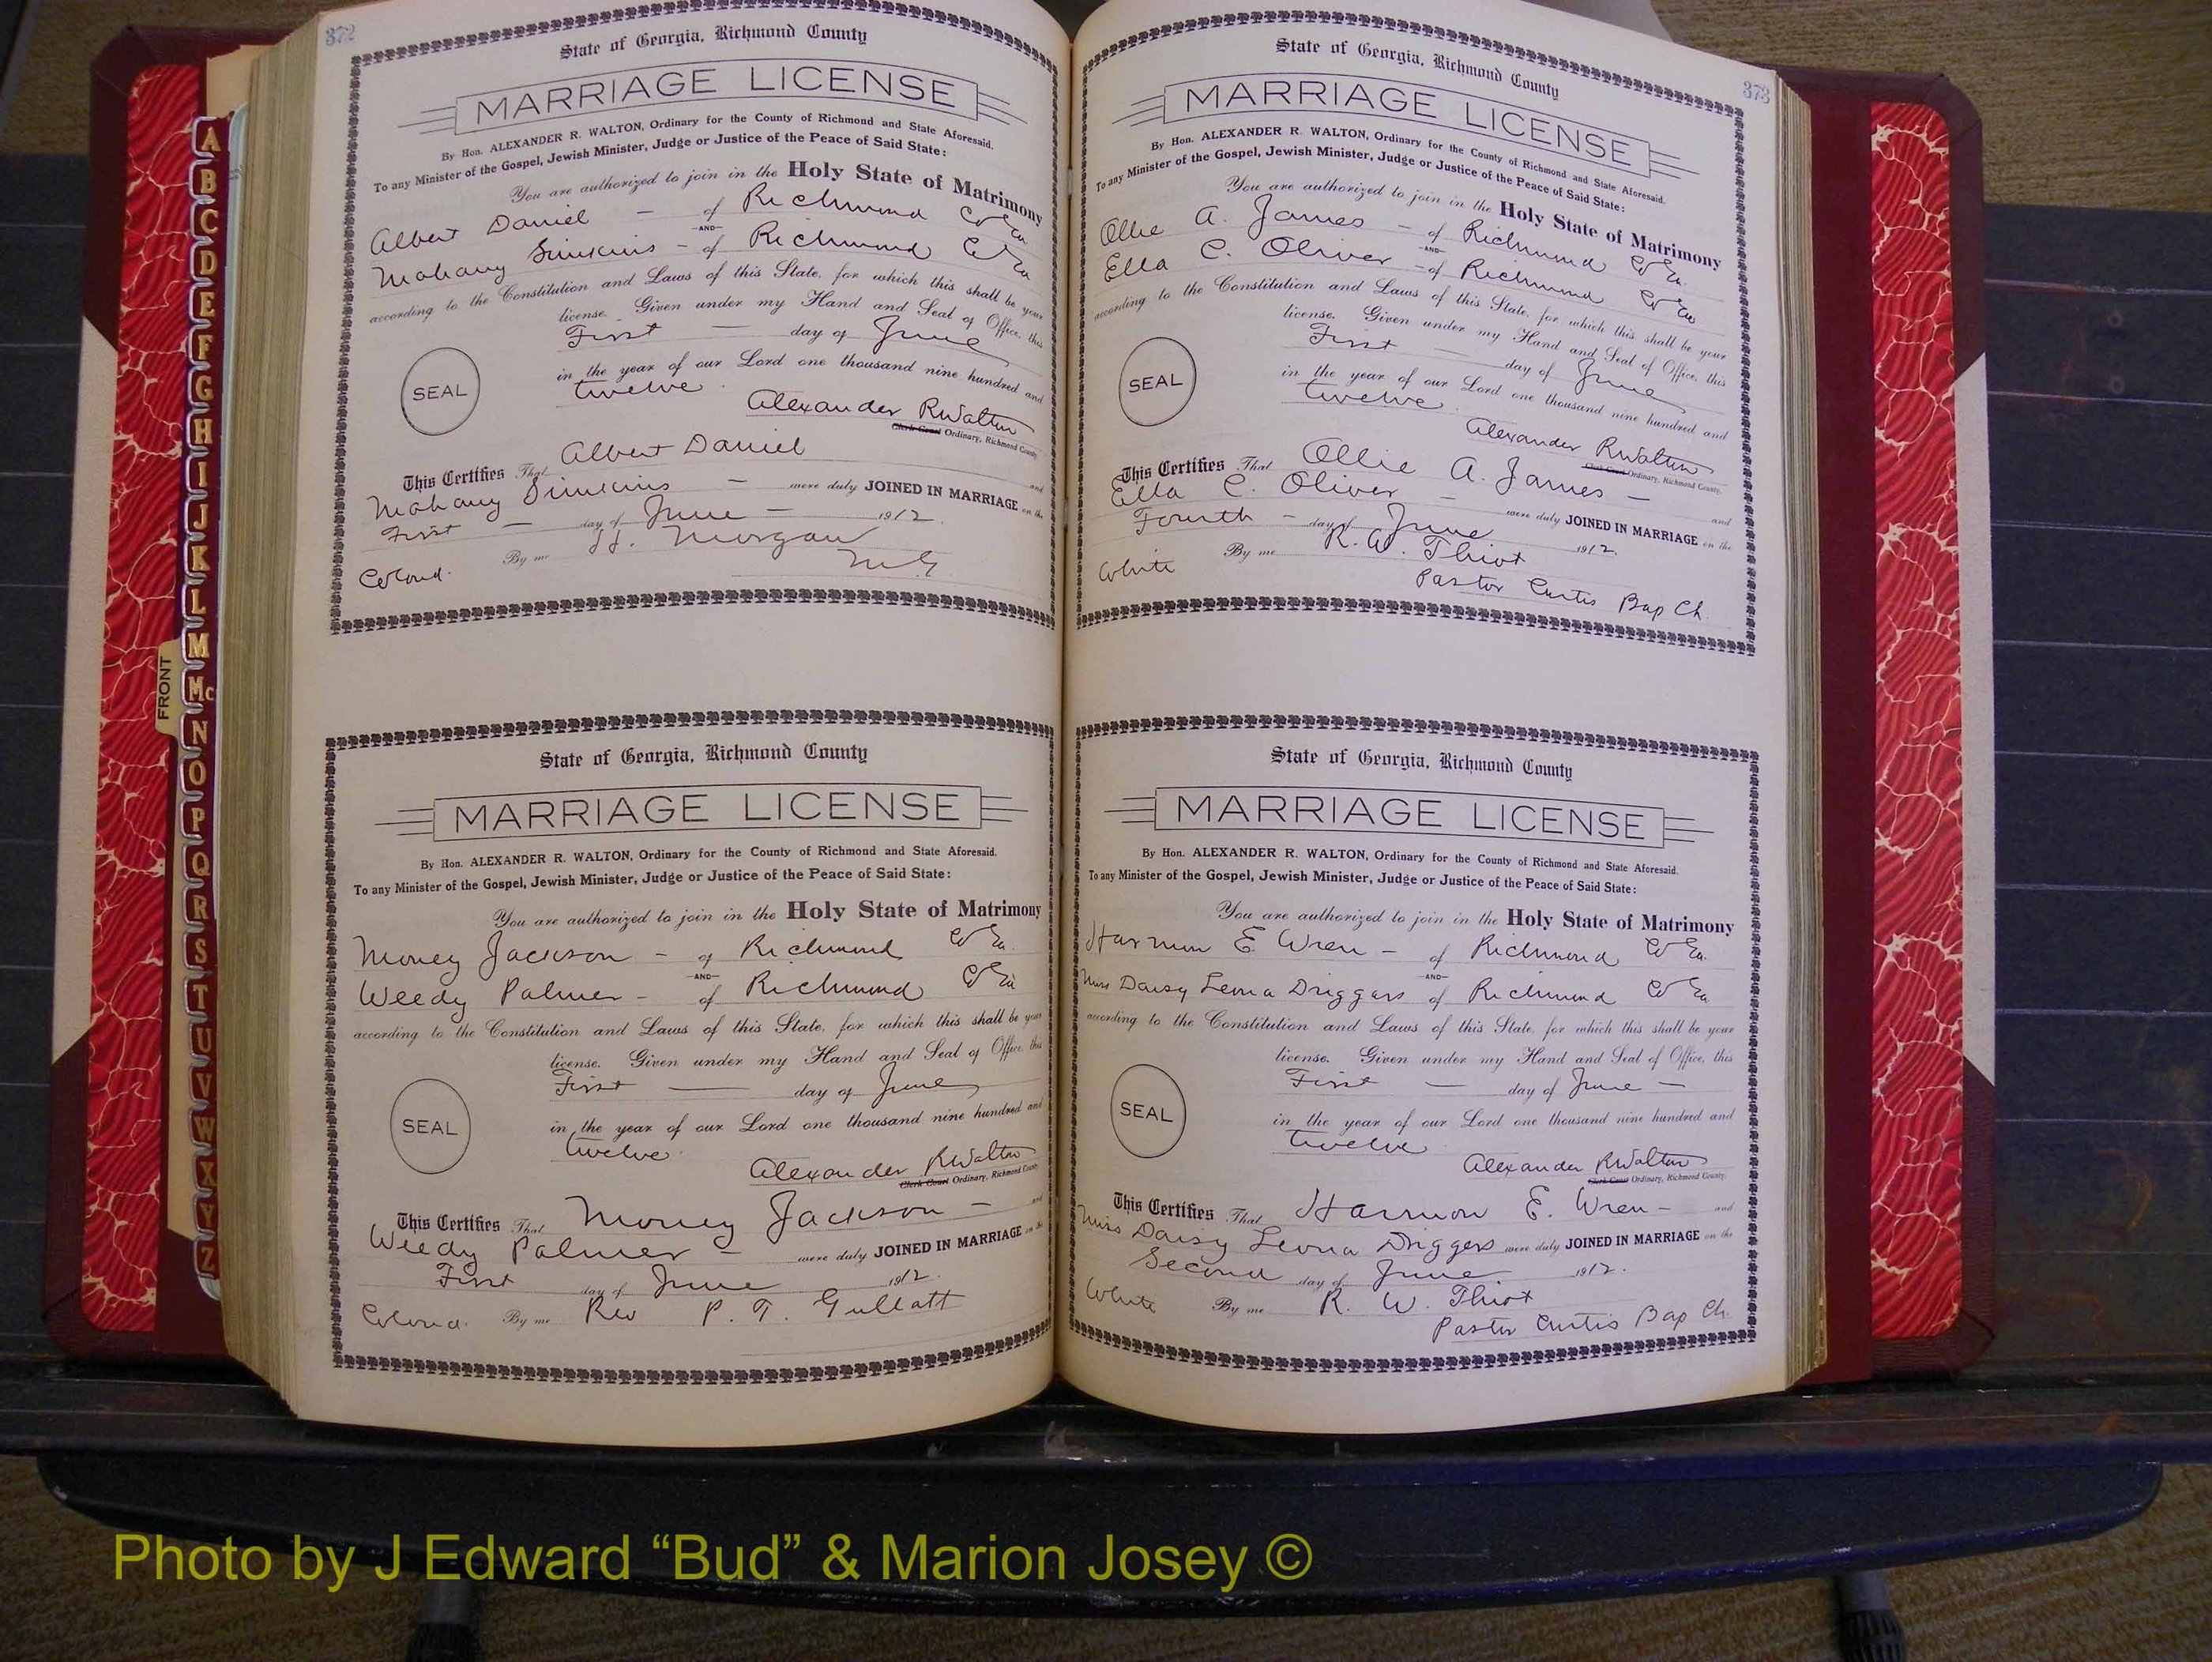 372
State of Georgia, Richmond County
MARRIAGE LICENSE
By Hon. ALEXANDER R. WALTON, Ordinary for the County of Richmond and State Aforesaid.
To any Minister of the Gospel, Jewish Minister, Judge or Justice of the Peace of Said State:
You are authorized to join in the Holy State of Matrimony
Albert Daniel - of Richmond Co Ga
-AND-
Mahany - of Richmond Co Ga
according to the Constitution and Laws of this State, for which this shall be your
license. Given under my Hand and Seal of Office, this
First - day of June
in the year of our Lord one thousand nine hundred and
twelve.
SEAL
Alexander R Walton
Clerk Court Ordinary, Richmond County
This Certifies That Albert Daniel and
Mahany - were duly JOINED IN MARRIAGE on the
First - day of June - 1912.
By me H. Morgan
Colored. M G
State of Georgia, Richmond County
MARRIAGE LICENSE
By Hon. ALEXANDER R. WALTON, Ordinary for the County of Richmond and State Aforesaid.
To any Minister of the Gospel, Jewish Minister, Judge or Justice of the Peace of Said State:
You are authorized to join in the Holy State of Matrimony
Money Jackson - of Richmond Co Ga.
-AND-
Weedy Palmer - of Richmond Co Ga
according to the Constitution and Laws of this State, for which this shall be your
license. Given under my Hand and Seal of Office, this
First - day of June
in the year of our Lord one thousand nine hundred and
twelve.
SEAL
Alexander R Walton
Clerk Court Ordinary, Richmond County
This Certifies That Money Jackson - and
Weedy Palmer - were duly JOINED IN MARRIAGE on the
First day of June 1912.
Colored. By me Rev P. T. Gullatt
373
State of Georgia, Richmond County
MARRIAGE LICENSE
By Hon. ALEXANDER R. WALTON, Ordinary for the County of Richmond and State Aforesaid.
To any Minister of the Gospel, Jewish Minister, Judge or Justice of the Peace of Said State:
You are authorized to join in the Holy State of Matrimony
Ollie A. James - of Richmond Co Ga.
-AND-
Ella C. Oliver - of Richmond Co Ga
according to the Constitution and Laws of this State, for which this shall be your
license. Given under my Hand and Seal of Office, this
First day of June
in the year of our Lord one thousand nine hundred and
twelve.
SEAL
Alexander R Walton
Clerk Court Ordinary, Richmond County.
This Certifies That Ollie A. James - and
Ella C. Oliver - were duly JOINED IN MARRIAGE on the
Fourth - day of June 1912.
By me R. W. Thiot
White Pastor Curtis Bap Ch.
State of Georgia, Richmond County
MARRIAGE LICENSE
By Hon. ALEXANDER R. WALTON, Ordinary for the County of Richmond and State Aforesaid.
To any Minister of the Gospel, Jewish Minister, Judge or Justice of the Peace of Said State:
You are authorized to join in the Holy State of Matrimony
Harmon E. Wren - of Richmond Co Ga.
-AND-
Miss Daisy Leona Driggars of Richmond Co Ga
according to the Constitution and Laws of this State, for which this shall be your
license. Given under my Hand and Seal of Office, this
First - day of June -
in the year of our Lord one thousand nine hundred and
twelve
SEAL
Alexander R Walton
Clerk Court Ordinary, Richmond County.
This Certifies That Harmon E. Wren - and
Miss Daisy Leona Driggers were duly JOINED IN MARRIAGE on the
Second day of June 1912.
White By me R. W. Thiot
Pastor Curtis Bap Ch.
FRONT
A
B
C
D
E
F
G
H
I
J
K
L
M
Mc
N
O
P
Q
R
S
T
U
V
W
X
Y
Z
Photo by J Edward “Bud” & Marion Josey ©